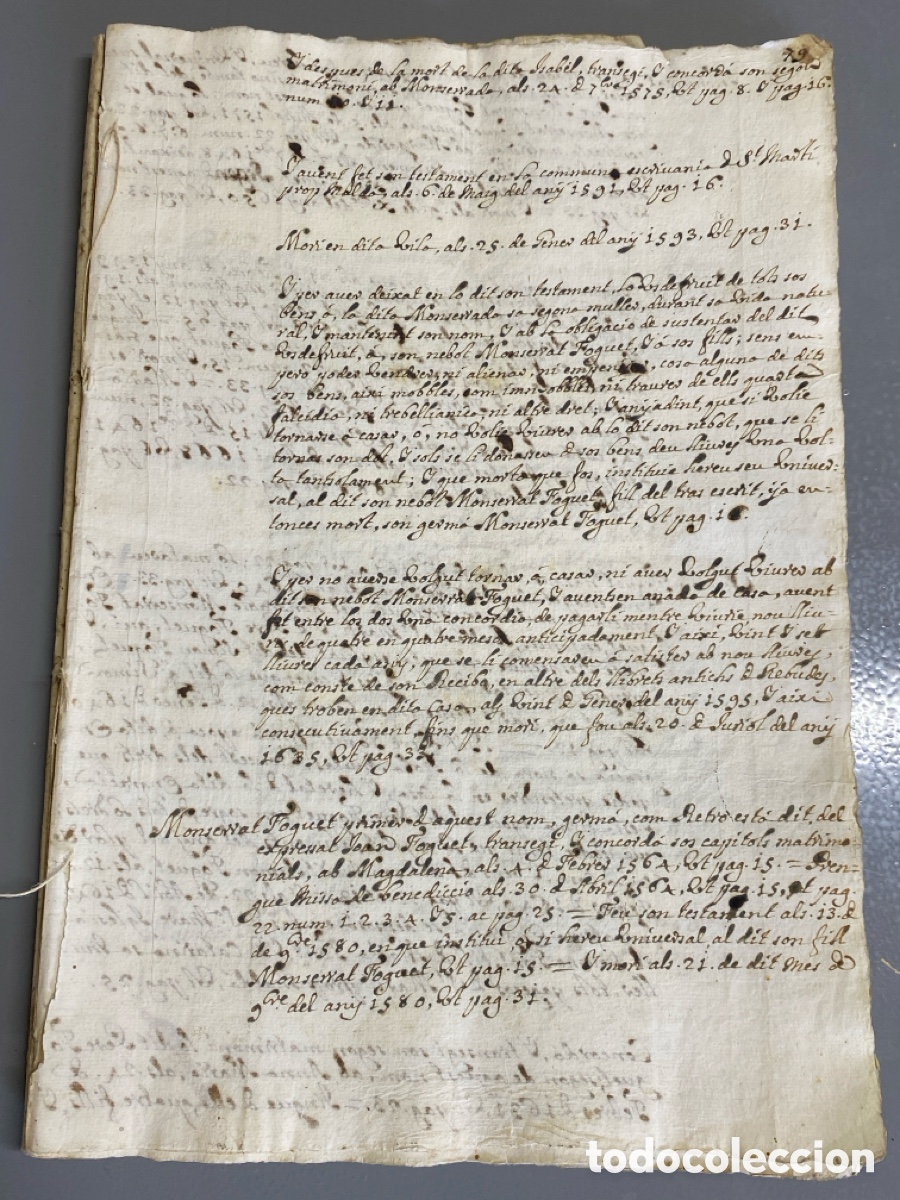 79
Y despues de la mort de la dita Isabèl, transegi, Y concordà son segon
matrimoni, ab Monserrada, als. 24. d 7bre 1575, Vt pag. 8. Y pag. 16.
num. 10. Y 11.
Y avent fet son testament en la communa escrivania d St. Marti
prop Maldà, als. 6. de Maig del any 1591, Vt pag. 16.
Mori en dita Vila, als. 25. de Gener del any 1593, Vt pag. 31.
Y per aver deixat en lo dit son testament, lo Vsdefruit de tots sos
bens, à, la dita Monserrada sa segona muller, durant sa Vida natu-
ral, Y mantenint son nom, Y ab la obligacio de sustentar del dit
Vsdefruit, à, son nebot Monserrat Foguet, Y à sos fills; sens em-
pero poder Vendrer, ni alienar, ni empeniar, cosa alguna de dits
sos bens, aixi mobbles, com immobbles, ni traurer de ells quarta
falcidia, ni trebellianica, ni altre dret; Y anyadint, que si Volie
tornarse à casar, ò, no Volie Viurer ab lo dit son nebot, que se li
tornas son dot, Y sols se li donassen d sos bens deu lliures Vna Vol-
ta tantsolament; Y que morta que fos, instituie hereu seu Vniver-
sal, al dit son nebot Monserrat Foguet, fill del tras escrit, ja en-
tonces mort, son germà Monserrat Foguet, Vt pag. 16.
Y per no averse Volgut tornar, à casar, ni aver Volgut Viurer ab
dit son nebot Monserrat Foguet, Y aventsen anada de casa, avent
fet entre los dos Vna concordia, de pagarli mentre Viurie, nou lliu-
res, de quatre en quatre mesos anticipadament, Y aixi, Vint Y set
lliures cada any, que se li comensaren à satisfer ab nou lliures,
com conste de son Recibo, en altre dels llibrets antichs d Rebudes,
ques troben en dita Casa, als Vint d Gener del any 1595, Y aixi
consecutivament, fins que mori, que fou als. 20. d Juriol del any
1635, Vt pag. 33.
Monserrat Foguet primer d aquest nom, germà, com Retro està dit, del
expressat Joan Foguet, transegi, Y concordà sos capitols matrimo-
nials, ab Magdalena, als. 4. d Febrer 1564, Vt pag. 15. = Pren-
gue Missa de benediccio als. 30. d Abril 1564, Vt pag. 15, et pag.
22. num. 1. 2. 3. 4. Y 5. ac pag. 25. = Feu son testament als. 13. d
de 9bre 1580, en que institui à, si hereu Vniversal, al dit son fill
Monserrat Foguet, Vt pag. 15. = Y mori als. 21. de dit mes d
9bre del any 1580, Vt pag. 31;
todocoleccion